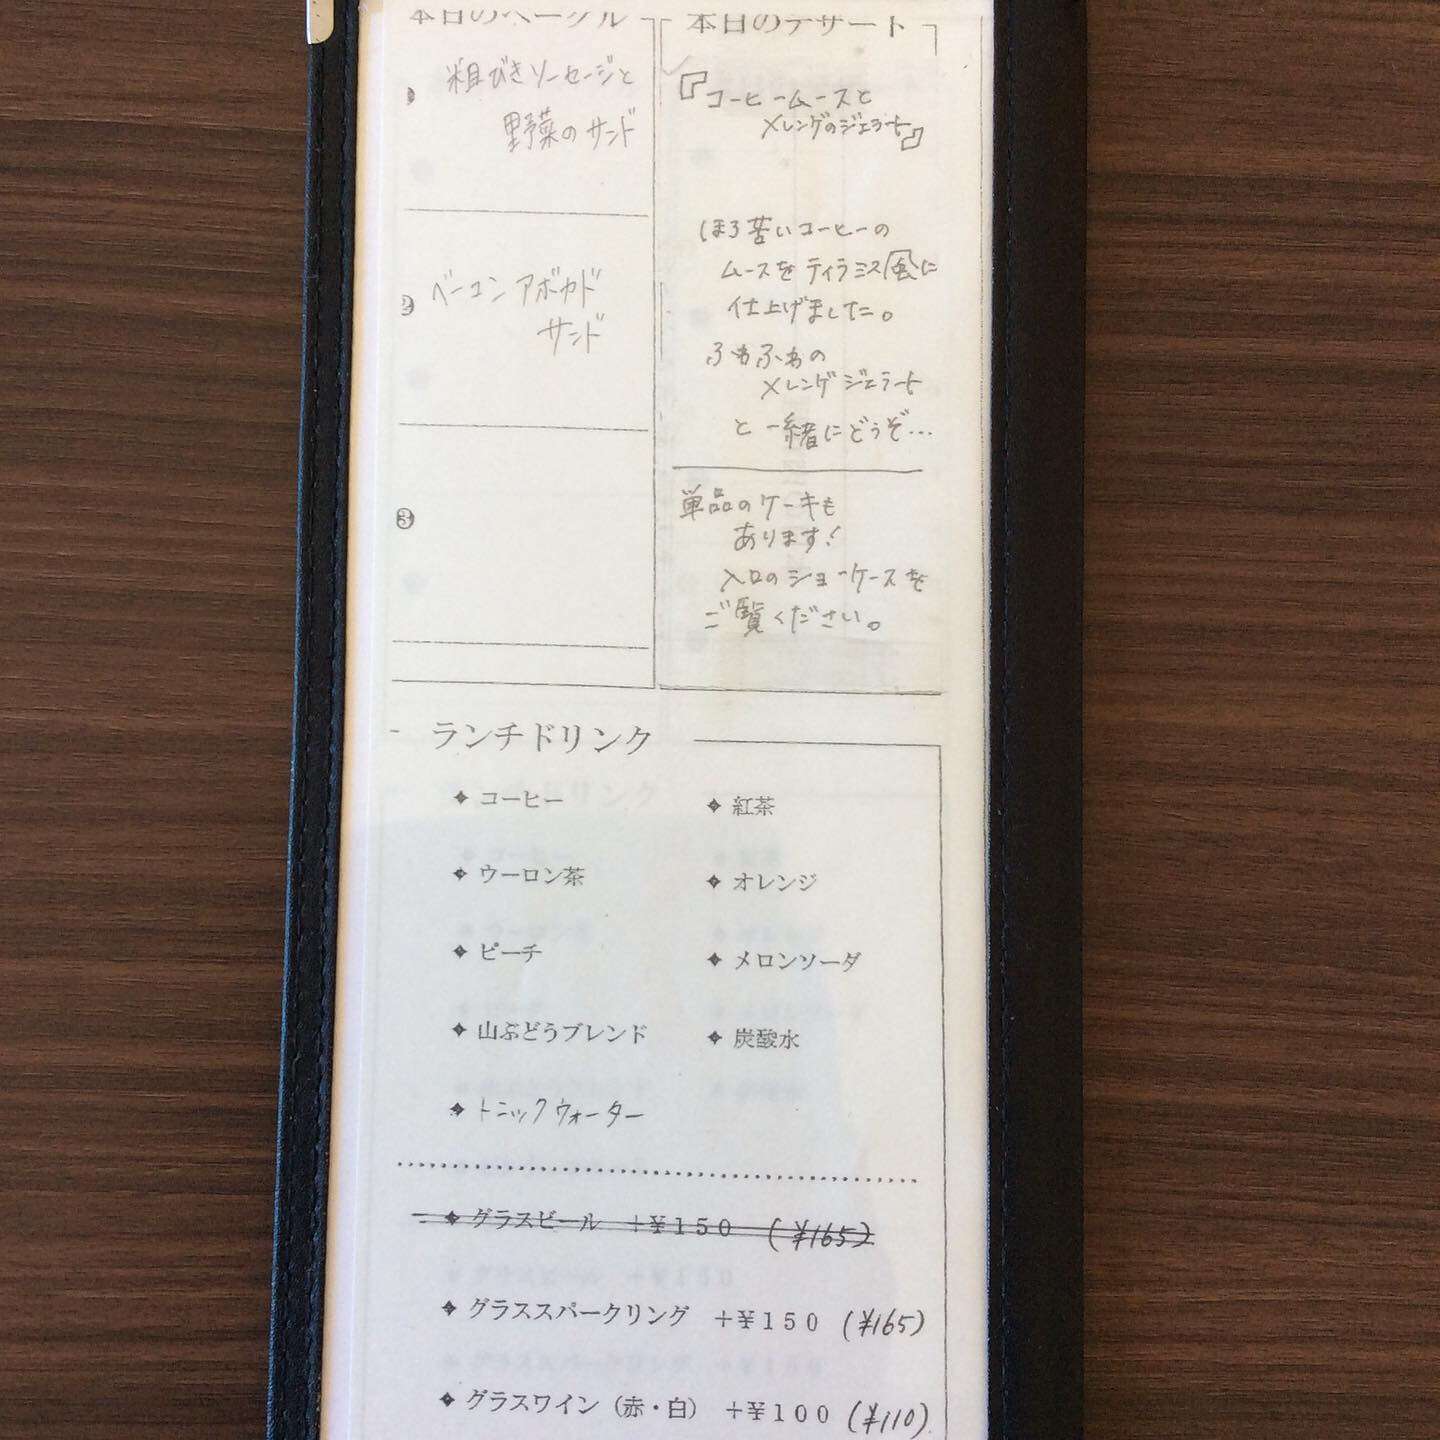 本日のベーグル
❶ 粗びきソーセージと
野菜のサンド
❷ ベーコンアボカド
サンド
❸
本日のデザート
『コーヒームースと
メレンゲのジェラート』
ほろ苦いコーヒーの
ムースをティラミス風に
仕上げました。
ふわふわの
メレンゲジェラート
と一緒にどうぞ…
単品のケーキも
あります!
入口のショーケースを
ご覧ください。
ランチドリンク
コーヒー
紅茶
ウーロン茶
オレンジ
ピーチ
メロンソーダ
山ぶどうブレンド
炭酸水
トニックウォーター
グラスビール +¥150 (¥165)
グラススパークリング +¥150 (¥165)
グラスワイン (赤・白) +¥100 (¥110)